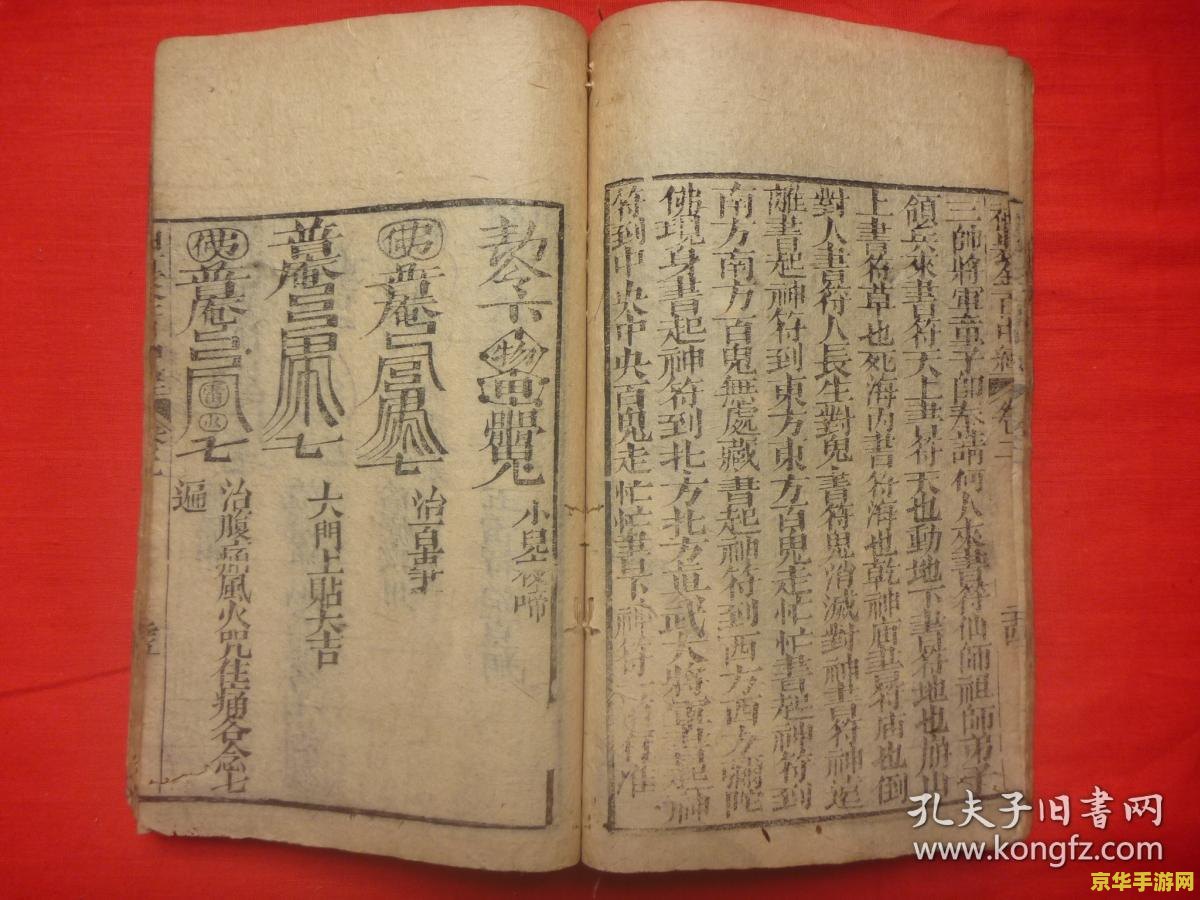 卷二
三師將軍童子郎奉請何人來書符仙師祖師弟子
領兵來書符天上書符天也動地下書符地也崩山
上書符草也死海内書符海也乾神庙書符庙也倒
對人書符人長生對鬼書符鬼消滅對神書符神迯
離書起神符到東方東方百鬼走忙忙書起神符到
南方南方百鬼無處藏書起神符到西方西方彌陀
佛現身書起神符到北方北方真武大將軍書起神
符到中央中央百鬼走忙忙書下神符
敕令下
小兒夜啼
佛普庵
治百事
普庵
大門上貼大吉
佛普庵
七
治腹痛風火咒住痛各念七
遍
孔夫子旧書网
www.kongfz.com
京华手游网